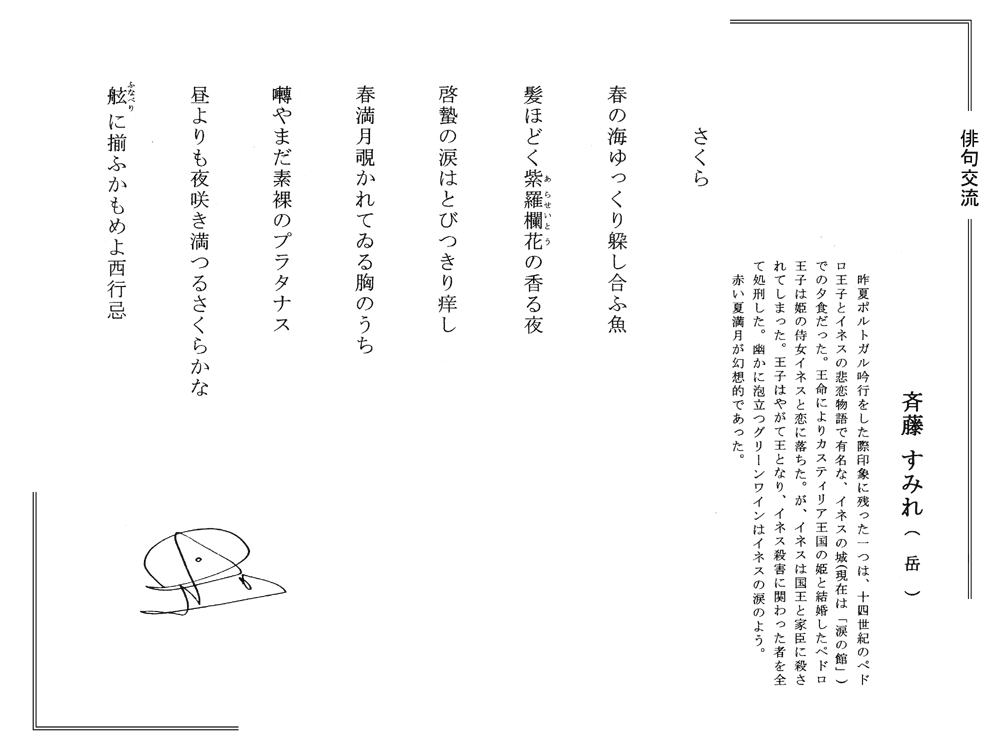 俳句交流
斉藤 すみれ（ 岳 ）
昨夏ポルトガル吟行をした際印象に残った一つは、十四世紀のペド
ロ王子とイネスの悲恋物語で有名な、イネスの城(現在は「涙の館」)
での夕食だった。王命によりカスティリア王国の姫と結婚したペドロ
王子は姫の侍女イネスと恋に落ちた。が、イネスは国王と家臣に殺さ
れてしまった。王子はやがて王となり、イネス殺害に関わった者を全
て処刑した。幽かに泡立つグリーンワインはイネスの涙のよう。
赤い夏満月が幻想的であった。
さくら
春の海ゆっくり躱し合ふ魚
髪ほどく紫羅欄花の香る夜
あらせいとう
啓蟄の涙はとびつきり痒し
春満月覗かれてゐる胸のうち
囀やまだ素裸のプラタナス
昼よりも夜咲き満つるさくらかな
舷に揃ふかもめよ西行忌
ふなべり